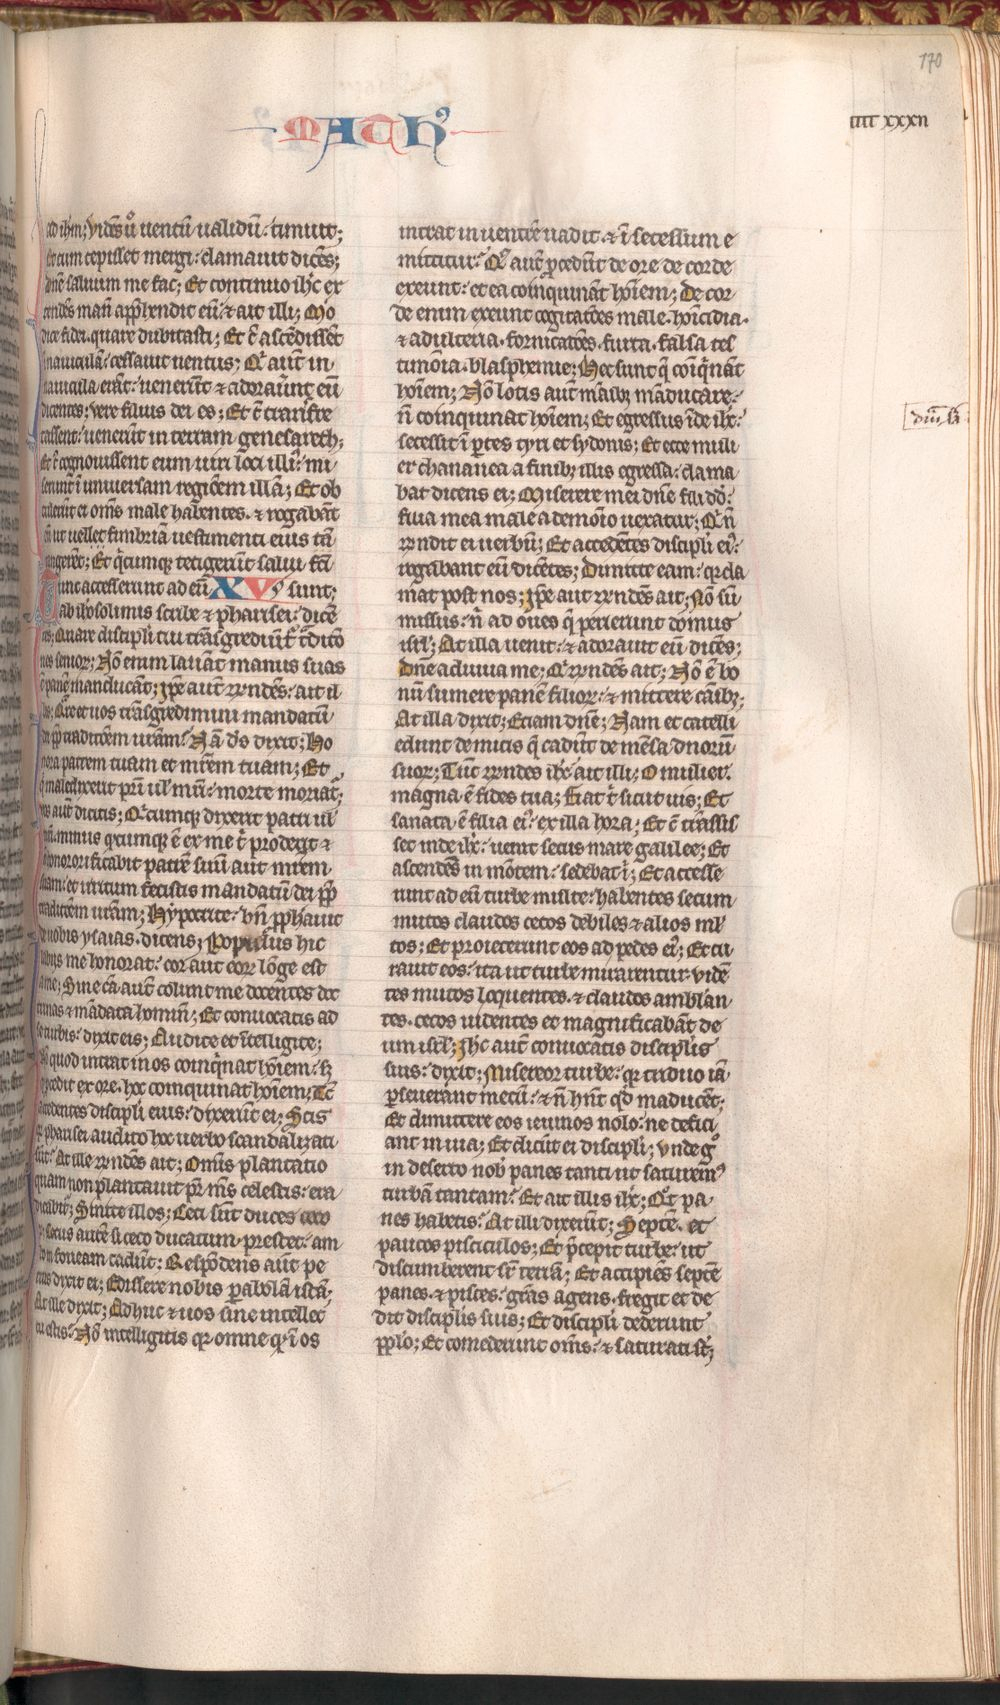 170
MATHꝰ
iiii xxxii
ad ihm; Vidēs ūo uentū ualidū: timuit;
Et cum cepisset mergi: clamauit dicēs;
dnē saluum me fac; Et continuo ihc̄ ex
tendēs manū app̄hendit eū: ⁊ ait illi; Mo
dice fidei. quare dubitasti; Et c̄ ascēdissēt
in nauiculā: cessauit uentus; Qī autē in
nauicula erāt: uenerūt ⁊ adorauūnt eū
dicentes; uere filius dei es; Et c̄ transfre
tassent: uenerūt in terram genesareth;
Et c̄ cognouissent eum uiri loci illiꝰ: mi
serunt ī uniuersam regiōem illā; Et ob
tulerūt ei om̄s male habentes. ⁊ rogabāt
eū ut uel fimbriā uestimenti eius tā
ngerēt; Et q̄cumqꝫ tetigerūt salui fc̄i
Tunc accesserunt ad eū XV sunt;
ab ihr̄osolimis scribe ⁊ pharisei: dicē
tes; Quare discipli tui trāsgrediūt̄ t̄dic̄o
nes senioꝝ; Nō enim lauāt manus suas
c̄ panē manducāt; Ipē autē r̄ndēs: ait il
lis; Qr̄e et uos trāsgredimini mandatū
dī pp̄ traditiōem ur̄am? Nā dš dixit; Ho
nora patrem tuum et mr̄em tuam; Et
q̄ maledixerit pr̄i ul̄ mr̄i: morte moriat᷑;
uos autē dicitis; Quicumqꝫ dixerit patri ul̄
mr̄i. munus q̄cumqꝫ ē ex me t̄ proderit ⁊
honorificabit patrē suū aut mr̄em
suam: et irritum fecistis mandatū dei pp̄
traditiōem ur̄am; Hypocrite: bn̄ pp̄hauit
de uobis ysaias. dicens; Populus hic
labiis me honorat: cor aut̄ eoꝝ lōge est
a me; Sine cā autē colunt me docentes doc
trinas ⁊ mādata hominū; Et conuocatis ad
se turbis: dixit eis; Audite et ītelligite;
Nō quod intrat in os coinq̄nat hoīem: sꝫ
q̄ procedit ex ore. hoc coinquinat hoīem; Tc̄
accedentes discipli eius: dixerūt ei; Scis
qꝛ pharisei audito hoc uerbo scandalizati
sūt? At ille r̄ndēs ait; Omīs plantatio
quam non plantauit pr̄ mēs celestis: era
dicabit᷑; Sinite illos; Ceci sūt duces ceco
rum; cecus autē si ceco ducatum prestet: am
bo in foueam cadūt: Respōdens aut̄ pe
trus dixit ei; Edissere nobis parabolā istā;
At ille dixit; Adhuc ⁊ uos sine intellec
tu estis? Nō intelligitis qꝛ omne qđ ī os
intrat in uentrē uadit. ⁊ ī secessum e
mittitur? Que aut̄ pꝛocedūt de ore de corde
exeunt: et ea coinquināt hoīem; De cor
de enim exeunt cogitatōes male. homicidia.
⁊ adulteria. fornicatōes. furta. falsa tes
timōia. blasphemie; Hec sunt q̄ coiq̄nāt
hoīem; Nō lotis aut̄ māibꝫ māducare:
n̄ coinquinat hoīem; Et egressus īde ihc̄:
secessit ī ꝑtes tyri et sydonis; Et ecce muli
er chananea a finibꝫ illis egressa: clama
bat dicens ei; Miserere mei dnē fili dd̄:
filia mea male a demoīo uexatur; Qī n̄
r̄ndit ei uerbū; Et accedētes discipli eiꝰ:
rogabant eū dicētes; Dimitte eam: qꝛ cla
mat post nos; Ipē aut r̄ndēs ait; Nō sū
missus: n̄ ad oues q̄ perierunt domus
isrl̄; At illa uenit: ⁊ adorauit eū dicēs;
Dnē adiuua me; Qī r̄ndēs ait; Nō ē bo
nū sumere panē filioꝝ: ⁊ mittere cāibꝫ;
At illa dixit; Etiam dnē; Nam et catelli
edunt de micis q̄ cadūt de mēsa dnorū
suoꝝ; Tūc r̄ndēs ihc̄ ait illi; O mulier.
magna ē fides tua; Fiat t̄ sicut uis; Et
sanata ē filia eiꝰ: ex illa hora; Et c̄ trāssis
set inde ihc̄: uenit secus mare galilee; Et
ascendēs in mōtem: sedebat ī; Et accesse
runt ad eū turbe multe: habentes secum
mutos claudos cecos debiles ⁊ alios ml̄
tos; Et proiecerunt eos ad pedes eiꝰ; Et cu
rauit eos: ita ut turbe mirarentur uidē
tes mutos loquentes. ⁊ claudos amblan
tes. cecos uidentes et magnificabāt de
um isrl̄; Ihc̄ aut̄ conuocatis disciplis
suis: dixit; Misereor turbe: qꝛ triduo iā
ꝑseuerant mecū: ⁊ n̄ hn̄t qđ māducēt;
Et dimittere eos ieiunos nolo: ne defici
ant in uia; Et dicūt ei discipli; Vnde gͦ
in deserto nob̄ panes tanti ut saturemꝰ
turbā tantam? Et ait illis ihc̄; Qͦt pa
nes habetis? At illi dixerūt; Septē. et
paucos pisciculos; Et p̄cepit turbe: ut
discumberent sr̄ terrā; Et accipiēs septē
panes. ⁊ pisces. gr̄as agens. fregit et de
dit disciplis suis; Et discipli dederunt
pp̄lo; Et comederunt om̄s: ⁊ saturati st̄;